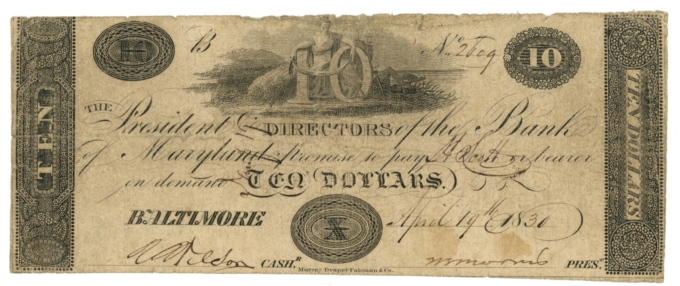 B No 2609 10
10
THE
President & DIRECTORS of the Bank
of Maryland promise to pay or bearer
on demand TEN DOLLARS.
BALTIMORE X April 19th 1830
CASH.R PRES.T
Murray Draper Fairman & Co.
TEN
TEN DOLLARS